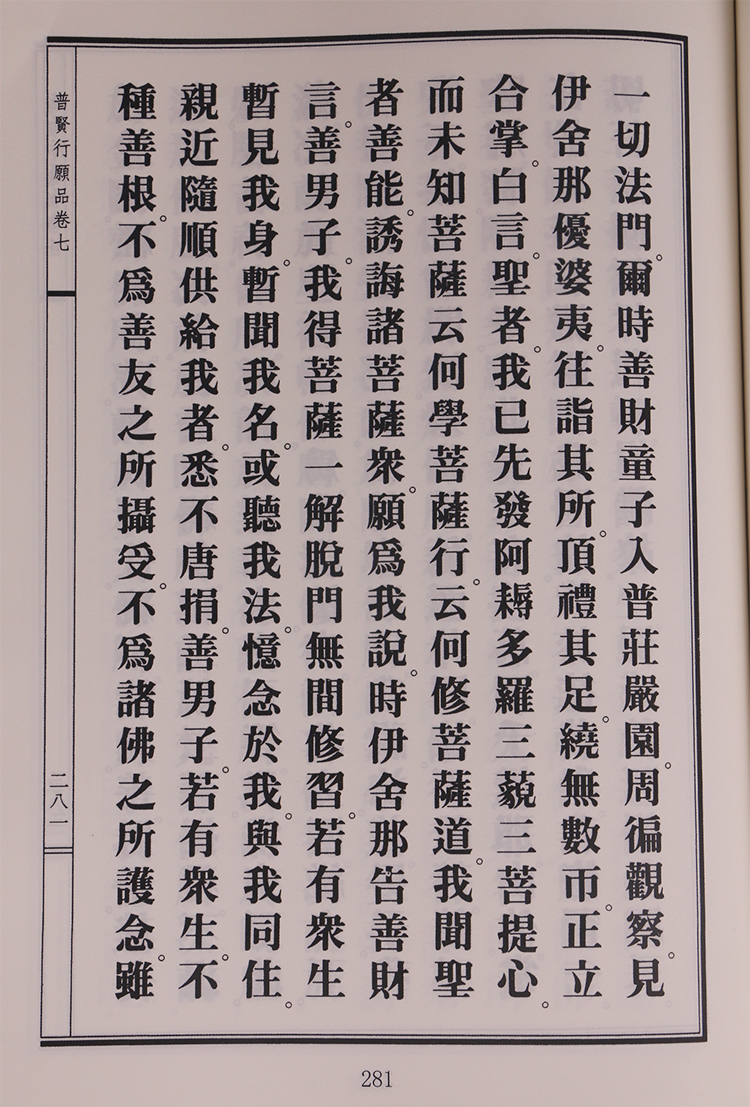 一切法門。爾時善財童子入普莊嚴園。周徧觀察。見
伊舍那優婆夷。往詣其所。頂禮其足。繞無數帀。正立
合掌。白言。聖者。我已先發阿耨多羅三藐三菩提心。
而未知菩薩云何學菩薩行。云何修菩薩道。我聞聖
者善能。誘誨諸菩薩衆。願爲我說。時伊舍那告善財
言。善男子。我得菩薩一解脫門無間修習。若有衆生
暫見我身。暫聞我名。或聽我法。憶念於我。與我同住。
親近隨順供給我者。悉不唐捐。善男子。若有衆生。不
種善根。不爲善友之所攝受。不爲諸佛之所護念。雖
普賢行願品卷七
二八一
281